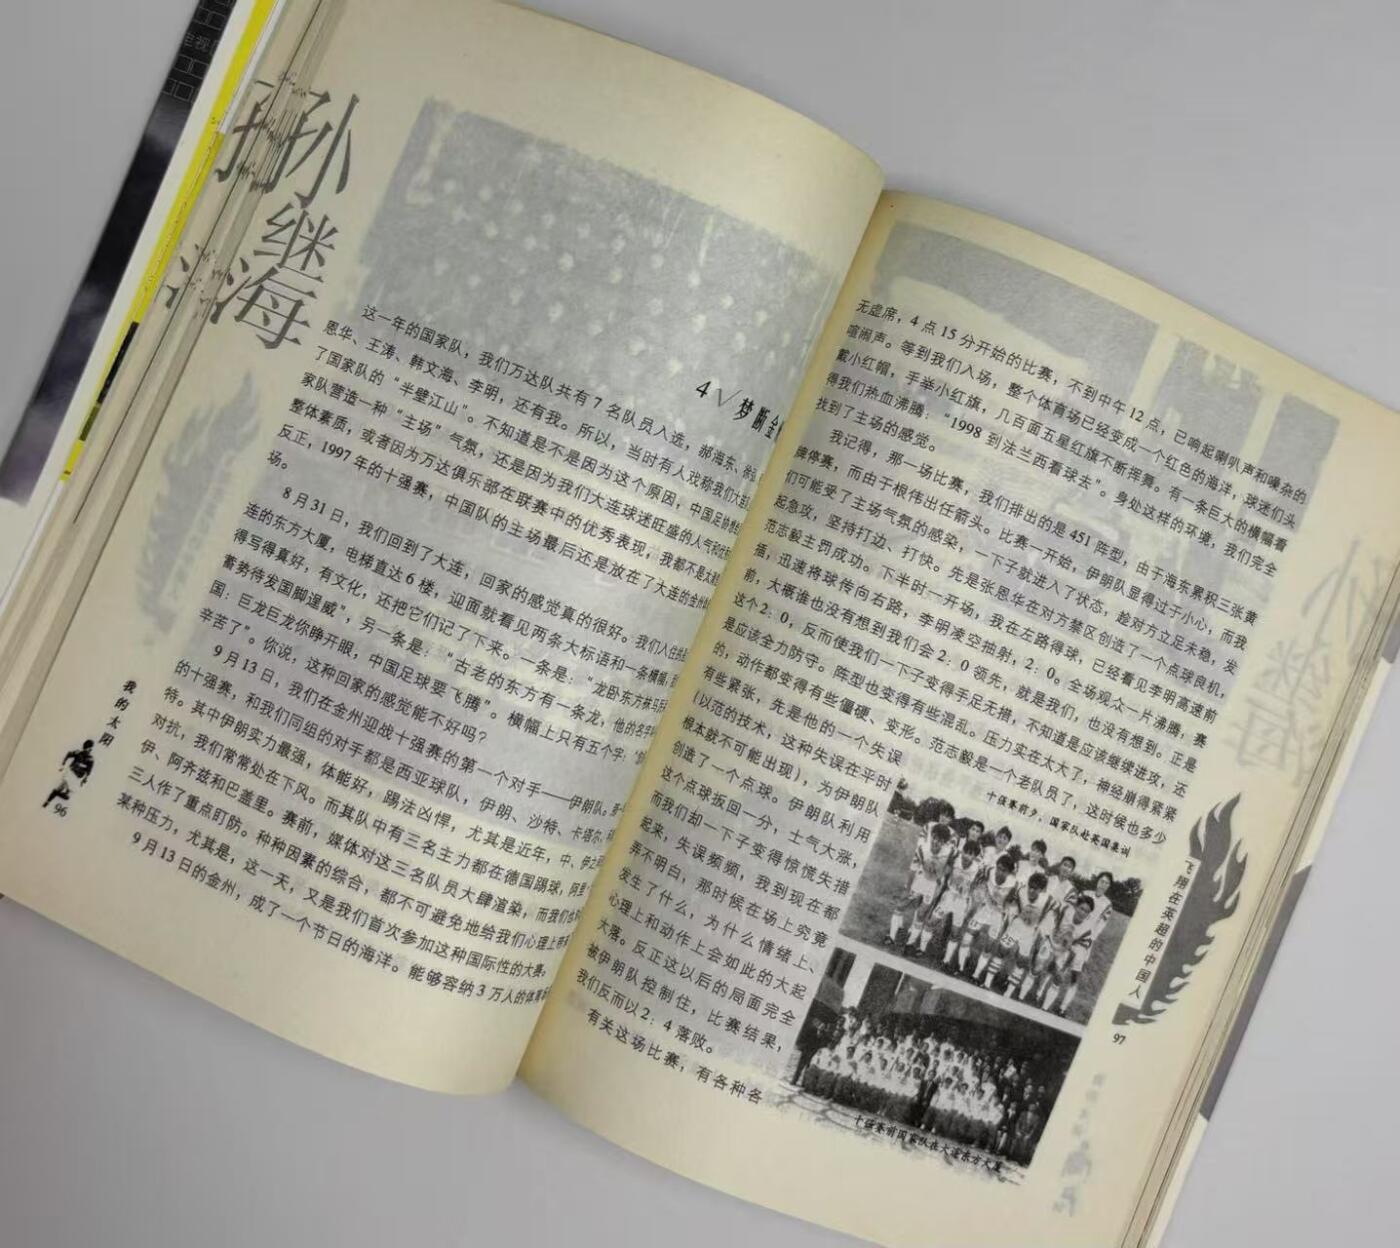 孙继海
4√ 梦断金
这一年的国家队，我们万达队共有7名队员入选，郝海东、徐
恩华、王涛、韩文海、李明，还有我。所以，当时有人戏称我们大
了国家队的“半壁江山”。不知道是不是因为这个原因，中国足协
家队营造一种“主场”气氛，还是因为我们大连球迷旺盛的人气和
整体素质，或者因为万达俱乐部在联赛中的优秀表现，我都不是太
反正，1997年的十强赛，中国队的主场最后还是放在了大连的金州
场。
8月31日，我们回到了大连，回家的感觉真的很好。我们入住
连的东方大厦，电梯直达6楼，迎面就看见两条大标语和一条横幅，
得写得真好，有文化，还把它们记了下来。一条是：“龙卧东方秣马
蓄势待发国脚逞威”，另一条是：“古老的东方有一条龙，他的名字
国：巨龙巨龙你睁开眼，中国足球要飞腾”。横幅上只有五个字：
辛苦了”。你说，这种回家的感觉能不好吗？
9月13日，我们在金州迎战十强赛的第一个对手——伊朗队。
的十强赛，和我们同组的对手都是西亚球队，伊朗、沙特、卡塔尔、
特。其中伊朗实力最强，体能好，踢法凶悍，尤其是近年，中、伊
对抗，我们常常处在下风。而其队中有三名主力都在德国踢球，阿里
伊、阿齐兹和巴盖里。赛前，媒体对这三名队员大肆渲染，而我们也
三人作了重点盯防。种种因素的综合，都不可避免地给我们心理上
某种压力，尤其是，这一天，又是我们首次参加这种国际性的大赛。
9月13日的金州，成了一个节日的海洋。能够容纳3万人的体育
我的太阳
96
无虚席，4点15分开始的比赛，不到中午12点，已响起喇叭声和嘈杂的
喧闹声。等到我们入场，整个体育场已经变成一个红色的海洋，球迷们头
戴小红帽，手举小红旗，几百面五星红旗不断挥舞。有一条巨大的横幅看
得我们热血沸腾：“1998到法兰西看球去”。身处这样的环境，我们完全
找到了主场的感觉。
我记得，那一场比赛，我们排出的是451阵型，由于海东累积三张黄
牌停赛，而由于根伟出任箭头。比赛一开始，伊朗队显得过于小心，而我
们可能受了主场气氛的感染，一下子就进入了状态，趁对方立足未稳，发
起急攻，坚持打边、打快。先是张恩华在对方禁区创造了一个点球良机，
范志毅主罚成功。下半时一开场，我在左路得球，已经看见李明高速前
插，迅速将球传向右路，李明凌空抽射，2：0。全场观众一片沸腾，赛
前，大概谁也没有想到我们会2：0领先，就是我们，也没有想到。正是
这个2：0，反而使我们一下子变得手足无措，不知道是应该继续进攻，还
是应该全力防守。阵型也变得有些混乱。压力实在太大了，神经崩得紧紧
的，动作都变得有些僵硬、变形。范志毅是一个老队员了，这时候也多少
有些紧张，先是他的一个失误
（以范的技术，这种失误在平时
根本就不可能出现），为伊朗队
创造了一个点球。伊朗队利用
这个点球扳回一分，士气大涨，
而我们却一下子变得惊慌失措
起来，失误频频，我到现在都
弄不明白，那时候在场上究竟
发生了什么，为什么情绪上、
心理上和动作上会如此的大起
大落。反正这以后的局面完全
被伊朗队控制住，比赛结果，
我们反而以2：4落败。
有关这场比赛，有各种各
十强赛前夕，国家队赴英国集训
十强赛前国家队在大连东方大厦
飞翔在英超的中国人
97